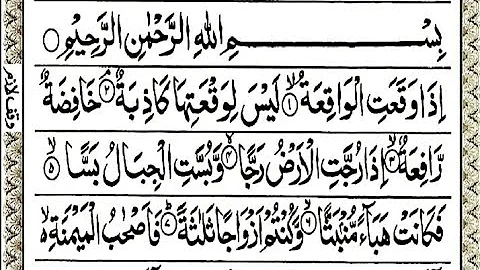 بِسْمِ اللهِ الرَّحْمٰنِ الرَّحِيْمِ
اِذَا وَقَعَتِ الْوَاقِعَةُ ۙ﴿۱﴾ لَيْسَ لِوَقْعَتِهَا كَاذِبَةٌ ۘ﴿۲﴾ خَافِضَةٌ
رَّافِعَةٌ ۙ﴿۳﴾ اِذَا رُجَّتِ الْاَرْضُ رَجًّا ۙ﴿۴﴾ وَّبُسَّتِ الْجِبَالُ بَسًّا ۙ﴿۵﴾
فَكَانَتْ هَبَآءً مُّنْۢبَثًّا ۙ﴿۶﴾ وَّكُنْتُمْ اَزْوَاجًا ثَلٰثَةً ؕ﴿۷﴾ فَاَصْحٰبُ الْمَيْمَنَةِ ۙ۬
وقف لازم